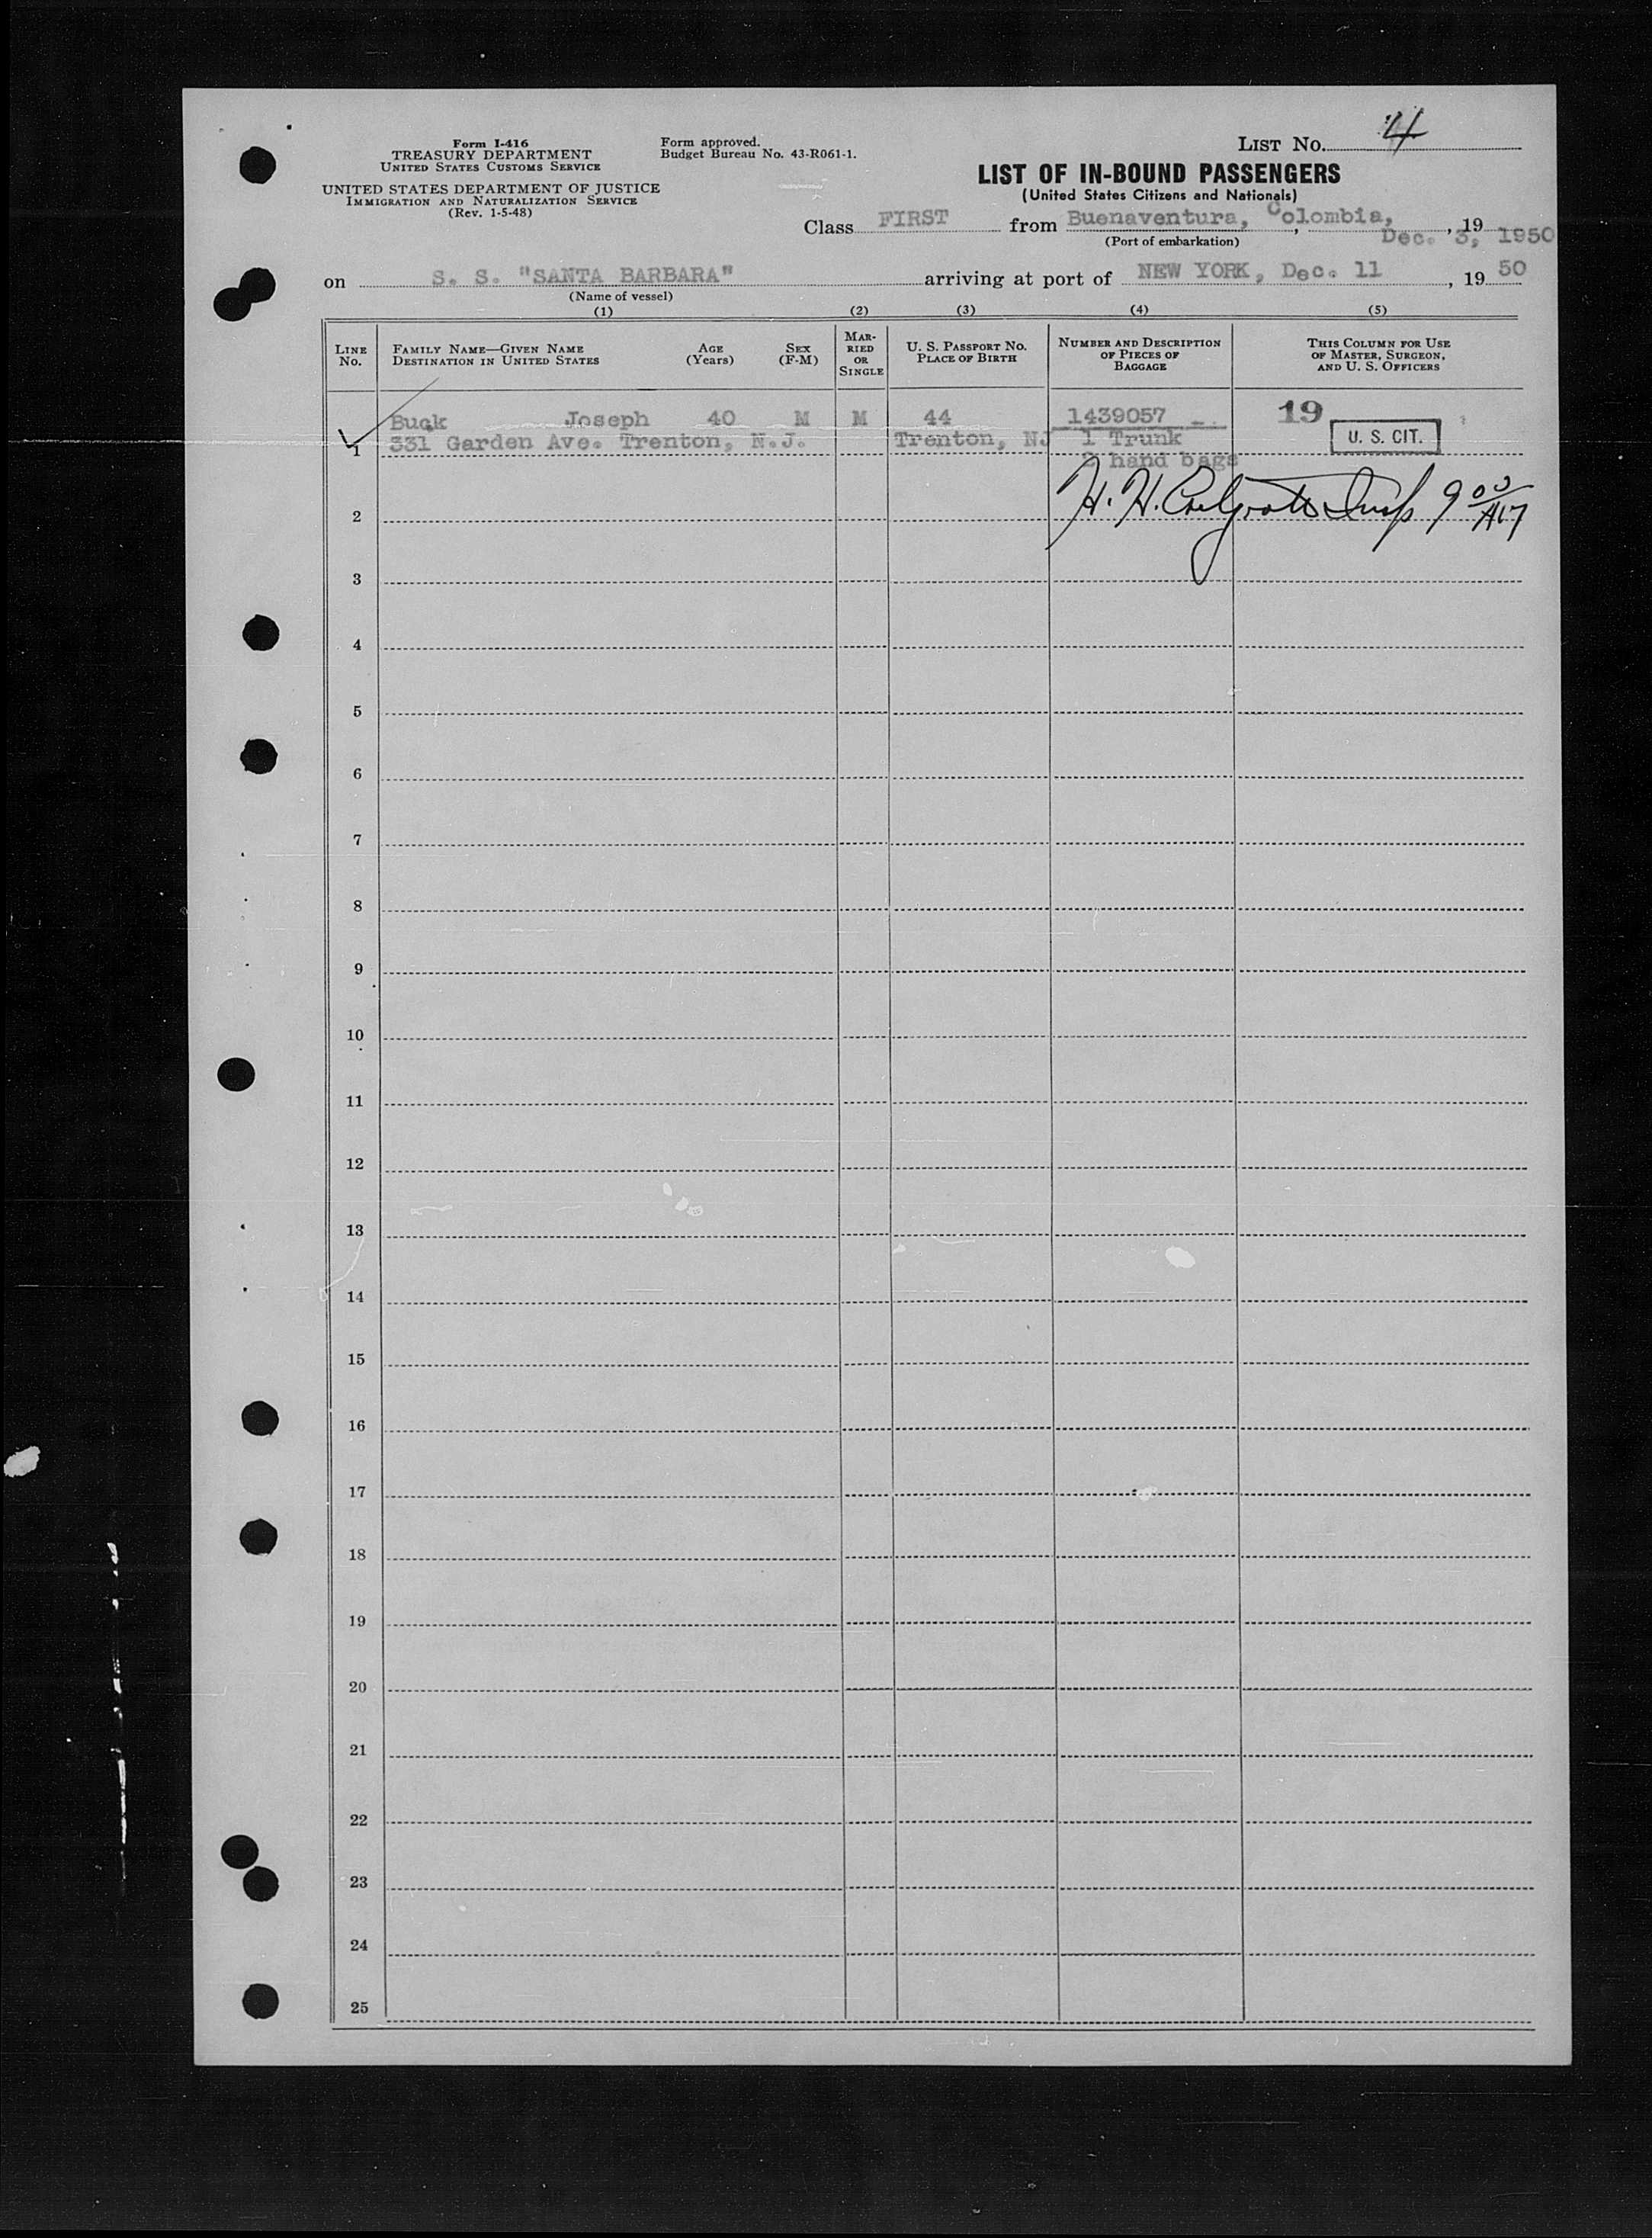 Form I-416
TREASURY DEPARTMENT
UNITED STATES CUSTOMS SERVICE
UNITED STATES DEPARTMENT OF JUSTICE
IMMIGRATION AND NATURALIZATION SERVICE
(Rev. 1-5-48)
Form approved.
Budget Bureau No. 43-R061-1.
LIST No. 4
LIST OF IN-BOUND PASSENGERS
(United States Citizens and Nationals)
Class FIRST from Buenaventura, Colombia, , 19
Dec. 3, 1950
(Port of embarkation)
on S. S. "SANTA BARBARA" arriving at port of NEW YORK, Dec. 11 , 19 50
(Name of vessel)
(1) (2) (3) (4) (5)
LINE No.
FAMILY NAME—GIVEN NAME
DESTINATION IN UNITED STATES
AGE (Years)
SEX (F-M)
MAR-
RIED
OR
SINGLE
U. S. PASSPORT NO.
PLACE OF BIRTH
NUMBER AND DESCRIPTION
OF PIECES OF
BAGGAGE
THIS COLUMN FOR USE
OF MASTER, SURGEON,
AND U. S. OFFICERS
Buck Joseph 40 M M 44 1439057 19
331 Garden Ave. Trenton, N.J. Trenton, NJ 1 Trunk U. S. CIT.
1
2 hand bags
H. H. Insp 9 00
2
3
4
5
6
7
8
9
10
11
12
13
14
15
16
17
18
19
20
21
22
23
24
25